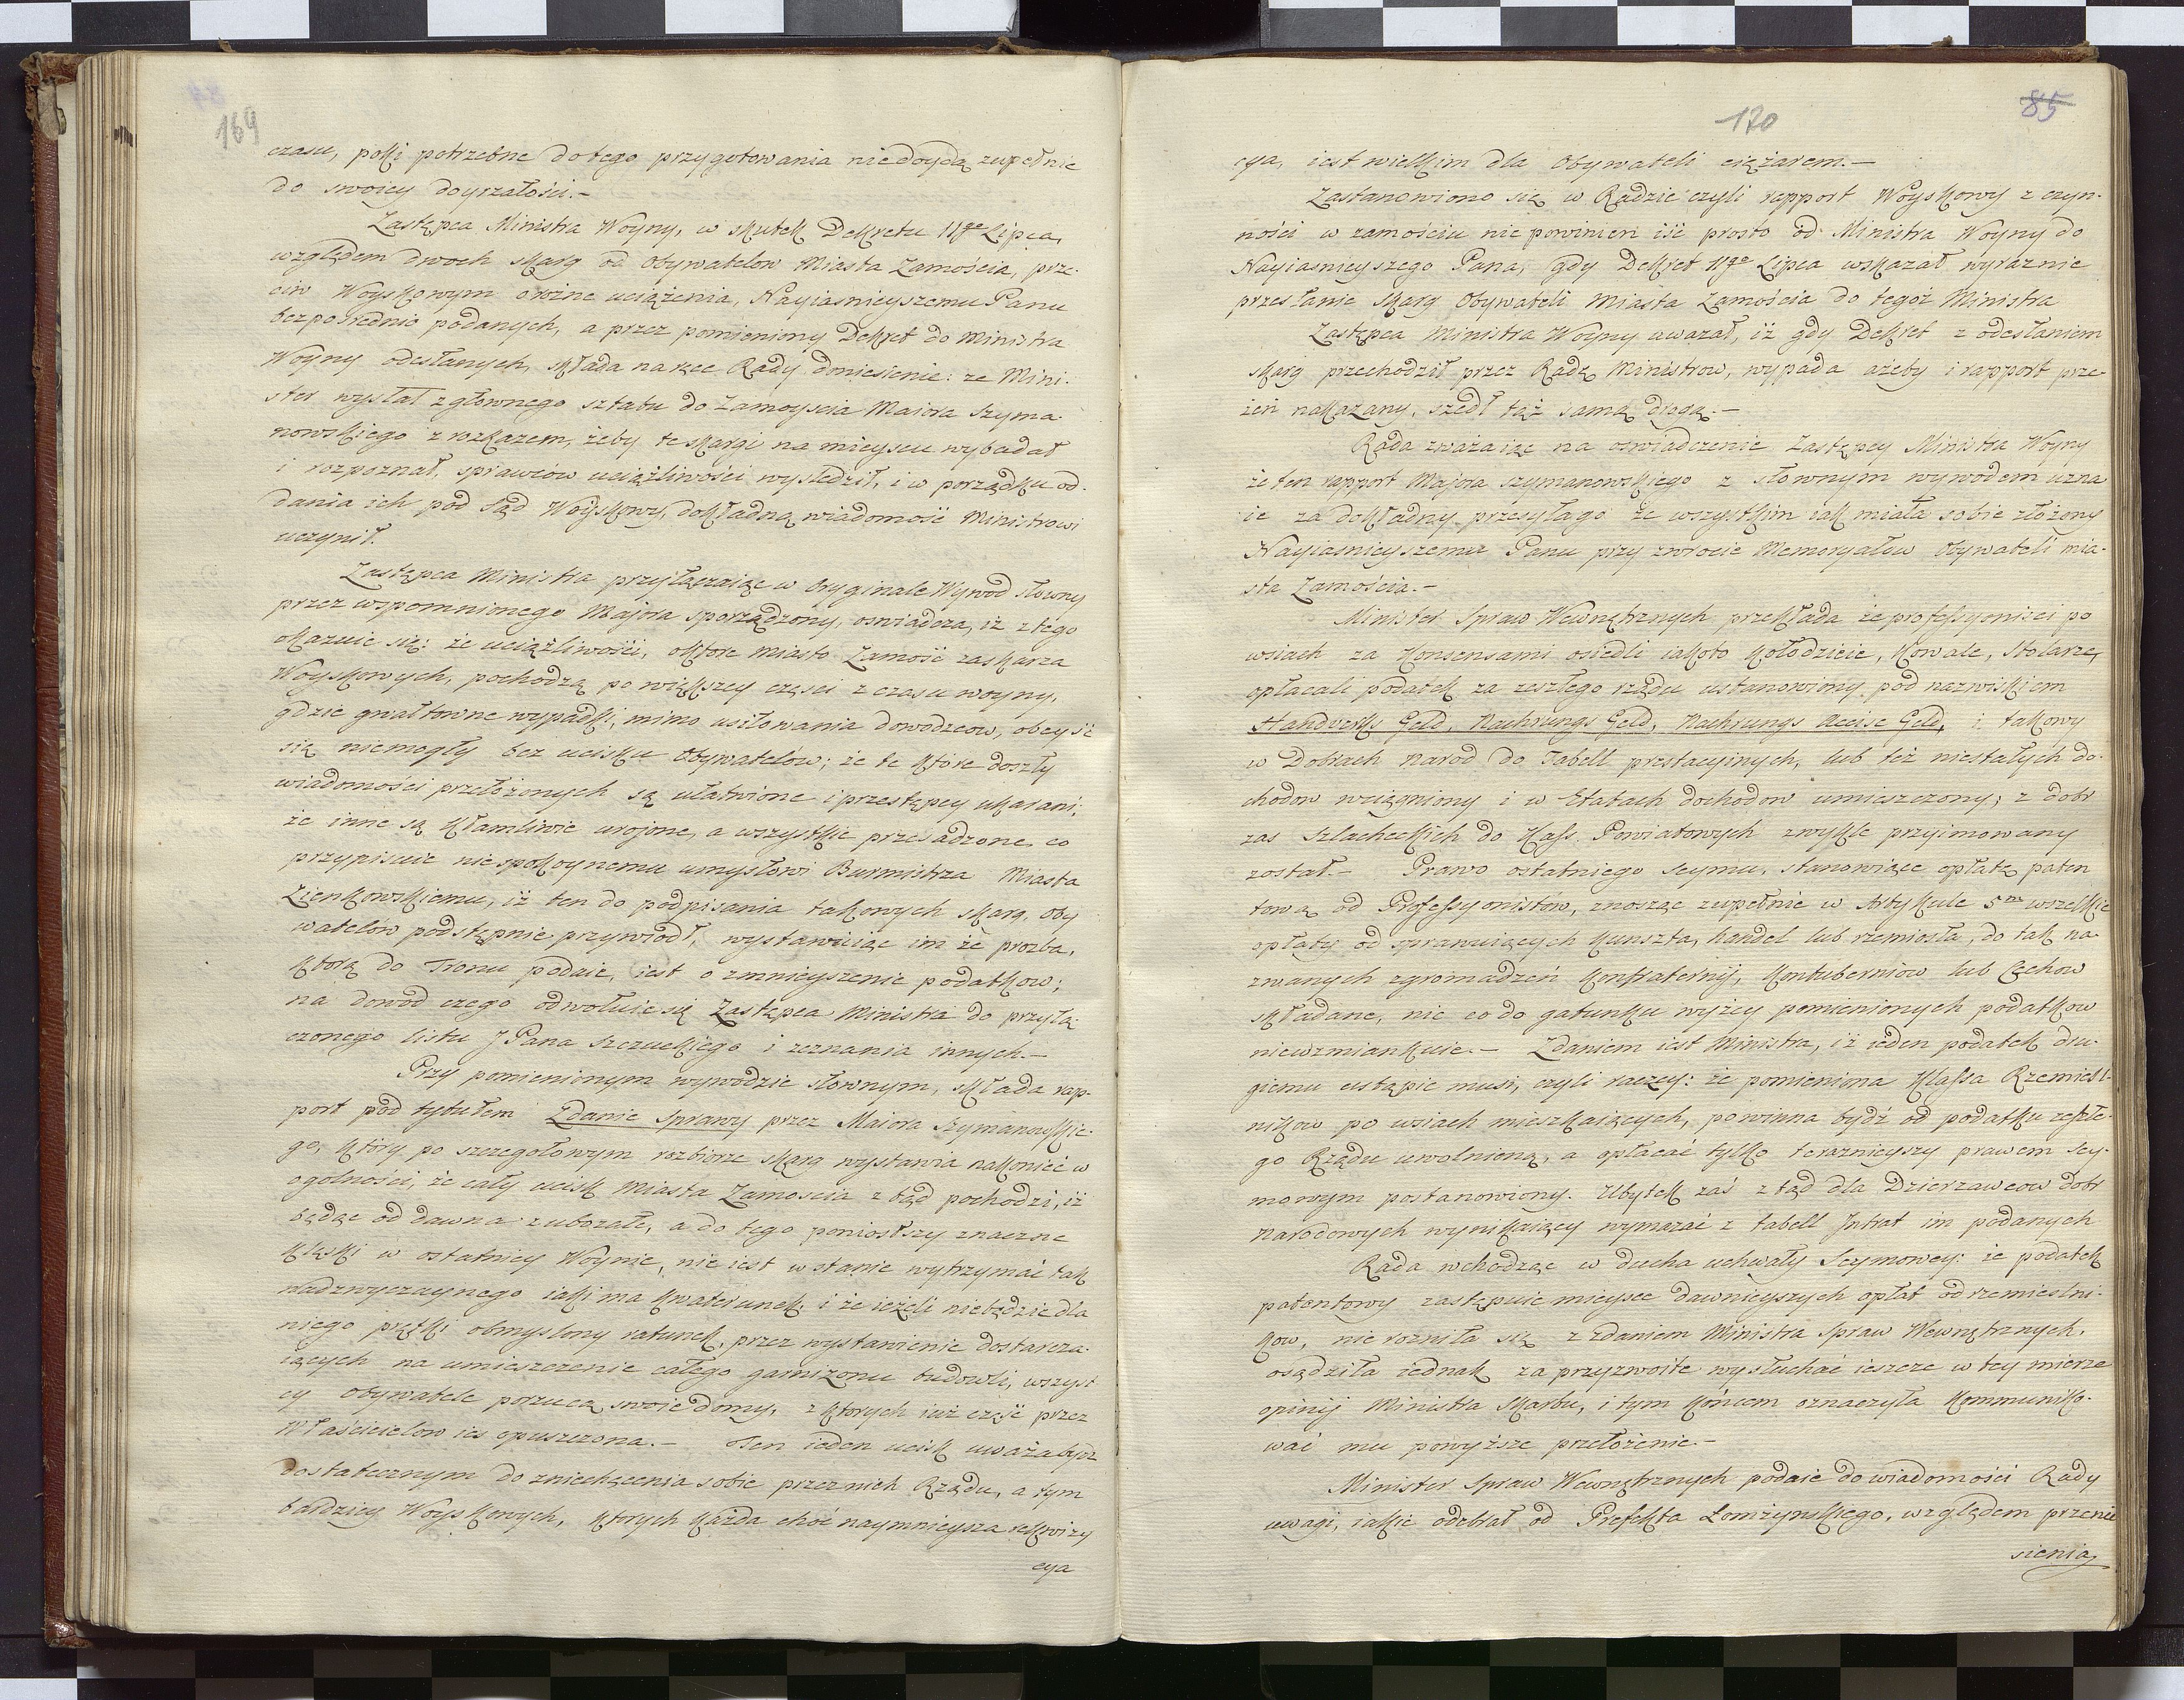 169
czasu, poki potrzebne do tego przygotowania niedoydą zupełnie
do swoiey doyrzałości.-
Zastępca Ministra Woyny, w skutek Dekretu 11go Lipca,
względem dwoch skarg od Obywatelow Miasta Zamościa, prze-
ciw Woyskowym o rożne uciążenia, Nayiasnieyszemu Panu
bezpośrednie podanych, a przez pomieniony Dekret do Ministra
Woyny odesłanych, składa na ręce Rady doniesienie: ze Mini-
ster wysłał z głownego sztabu do Zamoyscia Maiora Szyma-
nowskiego z rozkazem, żeby te skargi na mieyscu wybadał
i rozpoznał, sprawcow uciążliwości wysledził, i w porządku od-
dania ich pod Sąd Woyskowy, dokładną wiadomość Ministrowi
uczynił.
Zastępca Ministra przyłączaiąc w Oryginale Wywod słowny
przez wspomnionego Majora sporządzony, oswiadcza, iż z tego
okazuie się: że uciążliwości, o które Miasto Zamość zaskarza
Woyskowych, pochodzą po większey części z czasu woyny,
gdzie gwałtowne wypadki, mimo usiłowania dowodzcow, obeyść
się niemogły bez ucisku Obywatelów; że te które doszły
wiadomości przełożonych są ułatwione i przestępcy ukarani;
że inne są kłamliwie urojone, a wszystkie przesadzone, co
przypisuie niespokoynemu umysłowi Burmistrza Miasta
Zienkowskiemu, iż ten do podpisania takowych skarg, Oby
watelów podstępnie przywiodł, wystawuiąc im że prozba,
ktorą do Tronu podaie, iest o zmnieyszenie podatkow;
na dowod czego odwołuie się Zastępca Ministra do przyłą-
czonego listu J Pana Szczuckiego i zeznania innych.-
Przy pomienionym wywodzie słownym, składa rap-
port pod tytułem Zdanie Sprawy przez Maiora Szymanowskie-
go, który po szczegołowym rozbiorze skarg wystawia nakoniec w
ogolności, że cały ucisk Miasta Zamoscia z tąd pochodzi, iż
będąc od dawna zubożałe, a do tego poniosłszy znaczne
klęski w ostatniey Woynie, nie iest w stanie wytrzymać tak
nadzwyczaynego iaki ma kwaterunek; i że ieżeli niebędzie dla
niego prętki obmyslony ratunek, przez wystawienie dostarcza-
iących na umieszczenie całego garnizonu budowli, wszys-
cy obywatele porzucą swoie domy, z ktorych iuż część przez
Właścicielow ies opuszczona.- Ten ieden ucisk uważa bydź
dostatecznym do zniechęcenia sobie przez nich Rządu, a tym
bardziey Woyskowych, ktorych każda choć naymnieysza rekwizy
cya
170
85
cya, iest wielkim dla Obywateli ciężarem.-
Zastanowiono się w Radzie czyli rapport Woyskowy z czyn-
ności w zamościu nie powinien iść prosto od Ministra Woyny do
Nayiasnieyszego Pana, gdy Dekret 11go Lipca wskazał wyraznie
przesłanie skarg Obywateli Miasta Zamościa do tegóż Ministra
Zastępca Ministra Woyny uwazał, iż gdy Dekret z odesłaniem
skarg przechodził przez Radę Ministrow, wypada ażeby i rapport prze-
zeń nakazany, szedł tąż samą drogą.-
Rada zważaiąc na oswiadczenie Zastępcy Ministra Woyny
że ten rapport Majora Szymanowskiego z słownym wywodem uzna
ie za dokładny, przesyła go ze wszystkim iak miała sobie złożony
Nayiasnieyszemu Panu przy zwrocie Memoryałow Obywateli mia-
sta Zamościa.-
Minister Spraw Wewnętrznych przekłada że professyonisci po
wsiach za konsensami osiedli iakoto kołodzieie, kowale, Stolarze,
opłacali podatek za zeszłego rządu ustanowiony pod nazwiskiem
Handverks Geld, Nachrungs Geld, Nachrungs Accise Geld, i takowy
w dobrach narod do Tabell prestacyinych, lub też niestałych do-
chodow wciągniony i w Etatach dochodow umieszczony; z dobr
zas Szlacheckich do Kass. Powiatowych zwykle przyimowany
został.- Prawo ostatniego Seymu, stanowiące opłatę paten
tową od Professyonistów, znosząc zupełnie w Artykule 5m wszelkie
opłaty od sprawuiących kunszta, handel lub rzemiosła, do tak na-
zwanych zgromadzeń konfraternij, kontuberniow lub Cechow
składane, nic co do gatunku wyżey pomienionych podatkow
niewzmiankuie.- Zdaniem iest Ministra, iż ieden podatek dru-
giemu ustąpic musi, czyli raczey: że pomieniona Klassa Rzemieśl-
nikow po wsiach mieszkaiących, powinna bydź od podatku zeszłe-
go Rządu uwolnioną, a opłacać tylko teraznieyszy prawem Sey-
mowym postanowiony. Ubytek zaś z tąd dla Dzierzawcow dobr
narodowych wynikaiący wymazać z tabell Intrat im podanych
Rada wchodząc w ducha uchwały Seymowey: że podatek
patentowy zastępuie mieysce dawnieyszych opłat od rzemieslni-
kow, nie roznila się z zdaniem Ministra Spraw Wewnętrznych,
osądziła iednak za przyzwoite wysłuchać ieszcze w tey mierze
opinij Ministra Skarbu, i tym końcem oznaczyła kommuniko-
wać mu powyższe przełożenie.-
Minister Spraw Wewnętrznych podaie do wiadomości Rady
uwagi, iakie odebrał od Prefekta Łomżynskiego, względem przenie
sienia